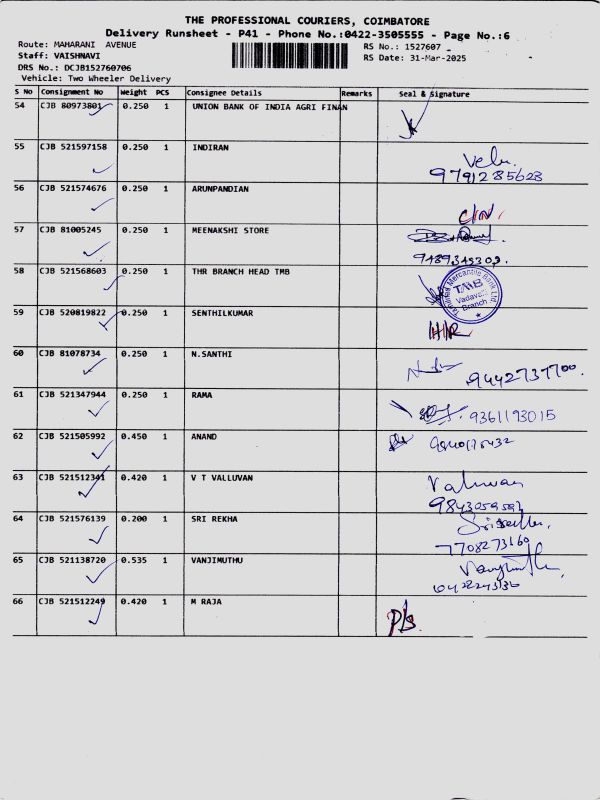 THE PROFESSIONAL COURIERS, COIMBATORE
Delivery Runsheet - P41 - Phone No.:0422-3505555 - Page No.:6
Route: MAHARANI AVENUE
RS No.: 1527607
Staff: VAISHNAVI
RS Date: 31-Mar-2025
DRS No.: DCJB152760706
Vehicle: Two Wheeler Delivery
S No Consignment No Weight PCS Consignee Details Remarks Seal & Signature
54 CJB 80973801 0.250 1 UNION BANK OF INDIA AGRI FINAN
55 CJB 521597158 0.250 1 INDIRAN
Velu.
9791285628
56 CJB 521574676 0.250 1 ARUNPANDIAN
57 CJB 81005245 0.250 1 MEENAKSHI STORE
58 CJB 521568603 0.250 1 THR BRANCH HEAD TMB
Tamilnad Mercantile Bank Ltd.
TMB
Vadavalli
Branch
59 CJB 520819822 0.250 1 SENTHILKUMAR
60 CJB 81078734 0.250 1 N.SANTHI
9442737700.
61 CJB 521347944 0.250 1 RAMA
9361193015
62 CJB 521505992 0.450 1 ANAND
63 CJB 521512341 0.420 1 V T VALLUVAN
Valluvan
64 CJB 521576139 0.200 1 SRI REKHA
7708273160
65 CJB 521138720 0.535 1 VANJIMUTHU
66 CJB 521512249 0.420 1 M RAJA